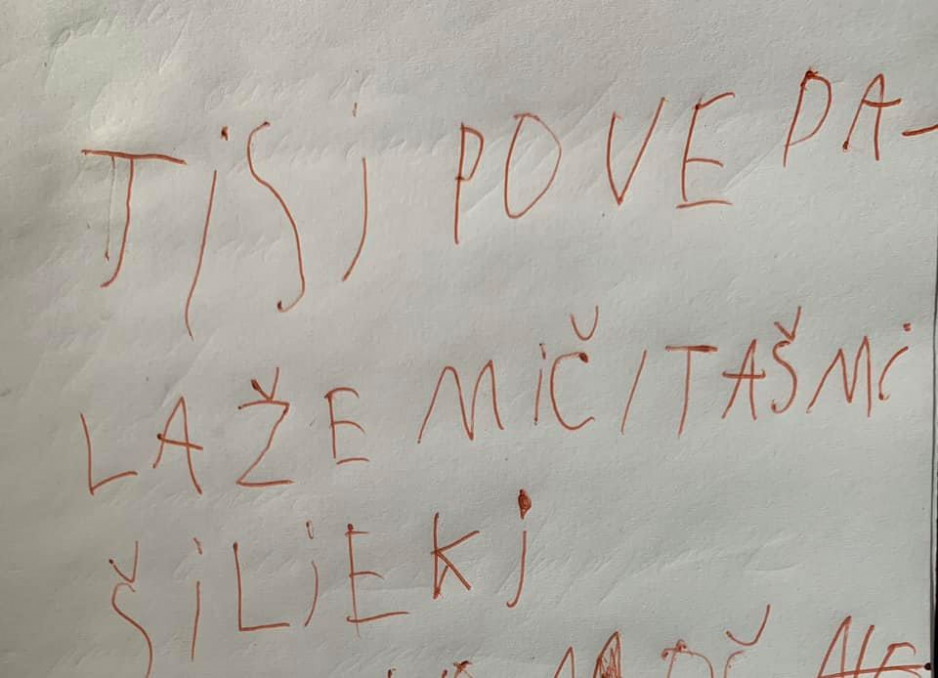 TiSi POVE PA-
LAŽE MiČ/TAŠMi
ŠiLjEKj